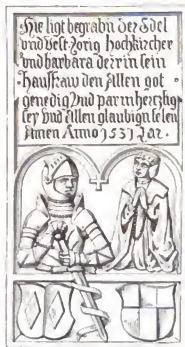 Hie ligt begrabn der Edel
und Vest Jorig Hochkircher
und barbara derrin sein
Hausfraw den Allen got
genedig Und parmhertzig
sey Und Allen glaubign selen
Amen Anno 1531 Jar.